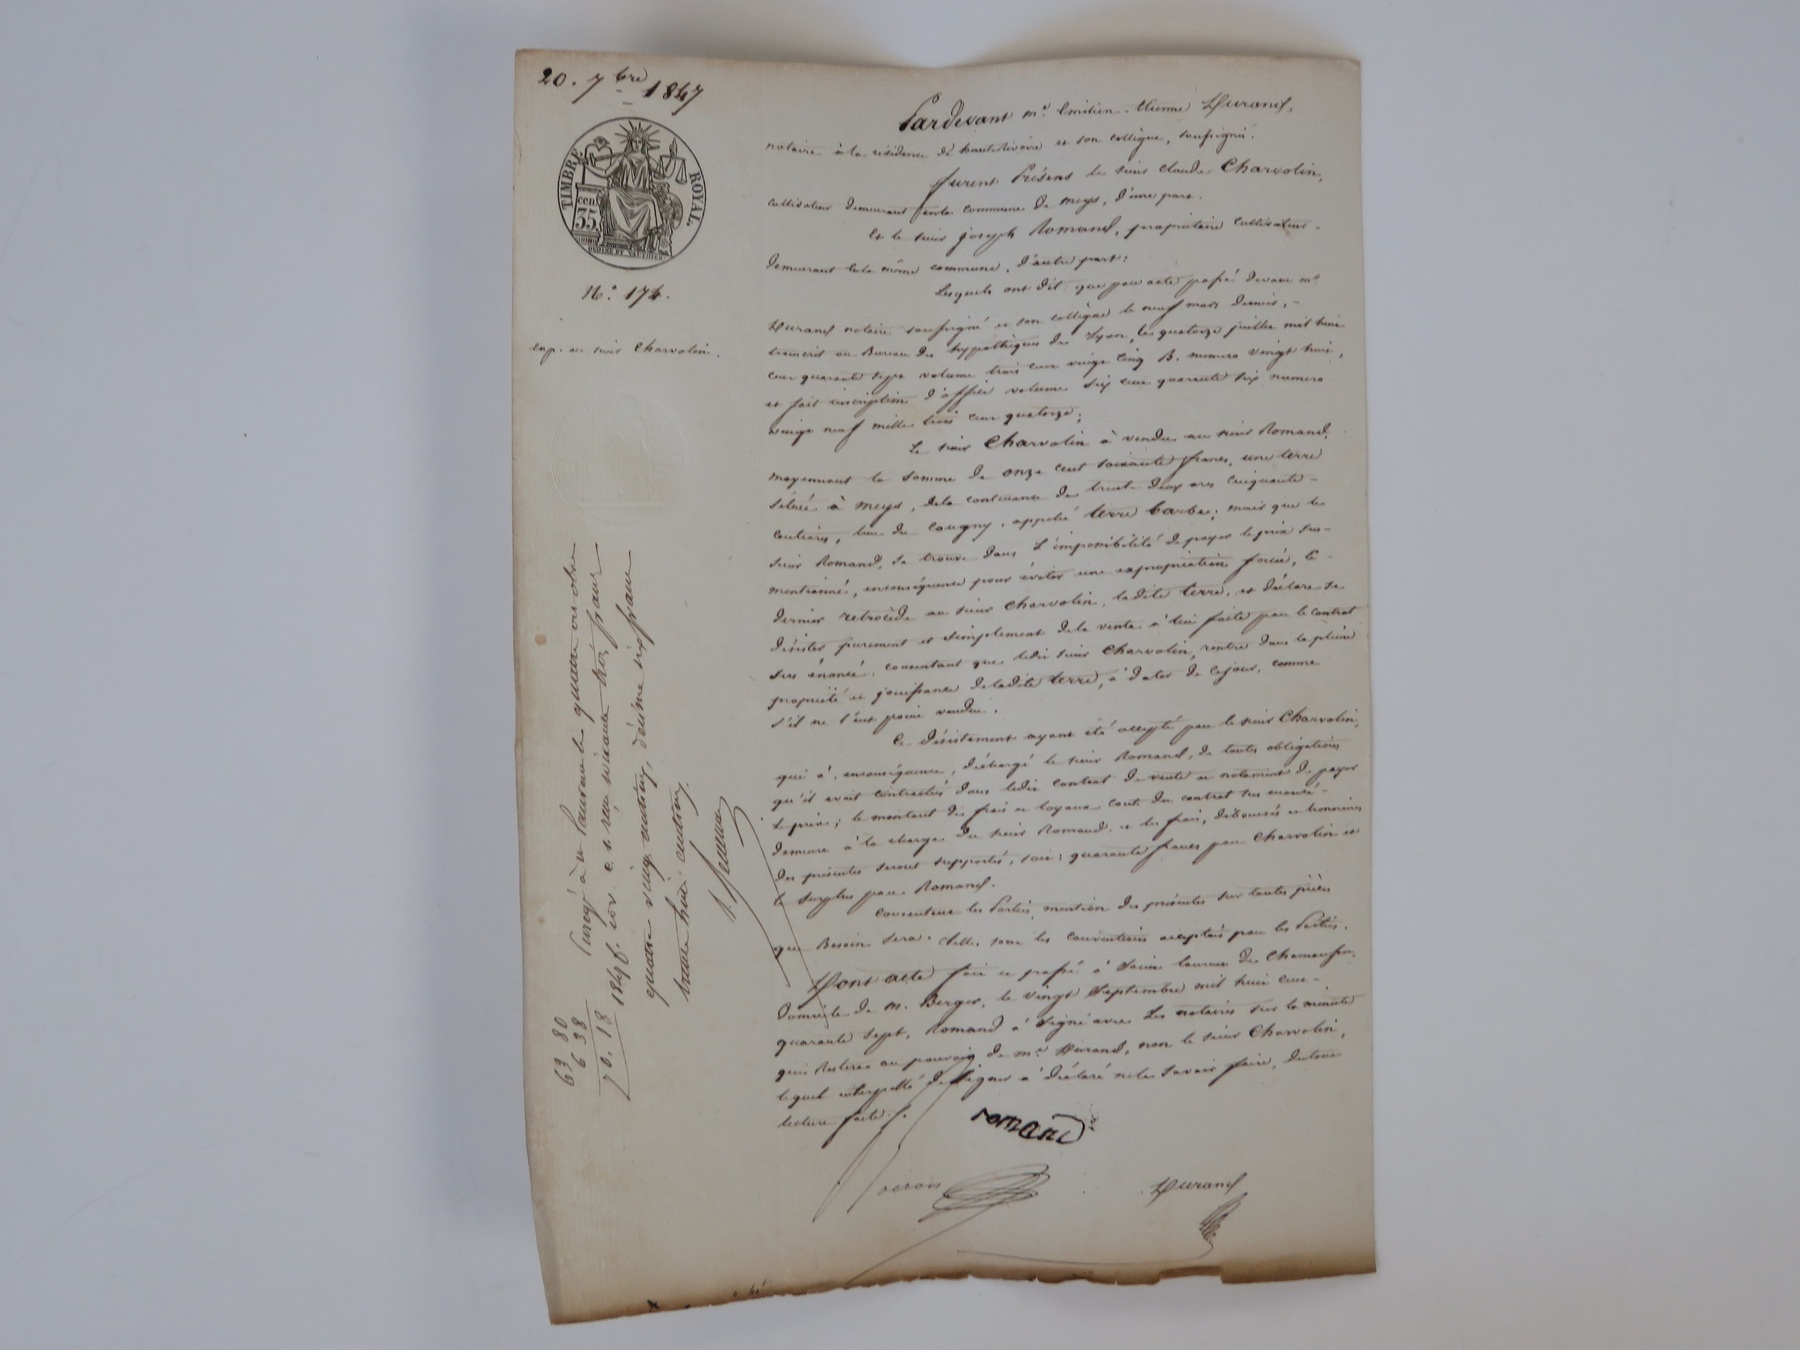 20. 7bre 1847
TIMBRE ROYAL.
cen
35.
N.° 174.
exp. au sieur Charvolin.
Pardevant me. Emilien-Etienne Durand,
notaire à la résidence de hauterivoire et son collègue, soussigné.
furent Présens le sieur Claude Charvolin,
cultivateur demeurant en la commune de meys, d'une part.
Et le sieur joseph Romand, propriétaire cultivateur -
demeurant en la même commune, d'autre part:
Lesquels ont dit que par acte passé devant me
Durand notaire soussigné et son collègue le neuf mars dernier, -
transcrit au Bureau des hypothèques de Lyon, le quatorze juillet mil huit
cent quarante sept volume trois cent vingt cinq B. numero vingt huit,
et fait inscription d'office volume six cent quarante six numero
vingt neuf mille trois cent quatorze;
Le sieur Charvolin à vendu au sieur Romand,
moyennant la somme de onze cent soixante francs, une terre
située à meys, dela contenance de trente deux ares cinquante -
centiares, lieu de cougny, appelé terre barbe; mais que le
sieur Romand, se trouve dans l'impossibilité de payer le prix sus-
mentionné, enconséquence pour éviter une expropriation forcée, ce -
dernier retrocède au sieur Charvolin, ladite terre, et déclare se
désister purement et simplement dela vente à lui faite par le contrat
sus énoncé. consentant que ledit sieur Charvolin, rentre dans la pleine
propriété et jouissance deladite terre, à dater de cejour, comme
s'il ne l'eut point vendue.
Ce désistement ayant été accepté par le sieur Charvolin,
qui à, enconséquence, déchargé le sieur Romand, de toutes obligations
qu'il avait contractées dans ledit contrat de vente et notamment de payer
le prix; le montant des frais et loyaux couts du contrat sus énoncé -
demeure à la charge du sieur Romand. et les frais, déboursés et honoraires
des présentes seront supportés, soit: quarante francs par Charvolin et
le surplus par Romand.
Consentent les Parties, mention des présentes sur toutes pièces
que Besoin sera. Telles sont les conventions acceptées par les Parties.
Dont acte fait et passé à Saint laurent de Chamousset,
domicile de m. Berger, le vingt Septembre mil huit cent -
quarante sept, Romand à signé avec Les notaires sur la minute
qui restera au pouvoir de me. Durand, non le sieur Charvolin,
lequel interpellé de signer à déclaré nele savoir faire, du tout
lecture faite./.
romand
Durand
Enregé à St Laurent le quatre octobre
1847 f. 100 c. 5. reçu soixante trois francs
quatre vingt centimes, décime six francs
trente huit centimes.
63 80
6 38
70. 18